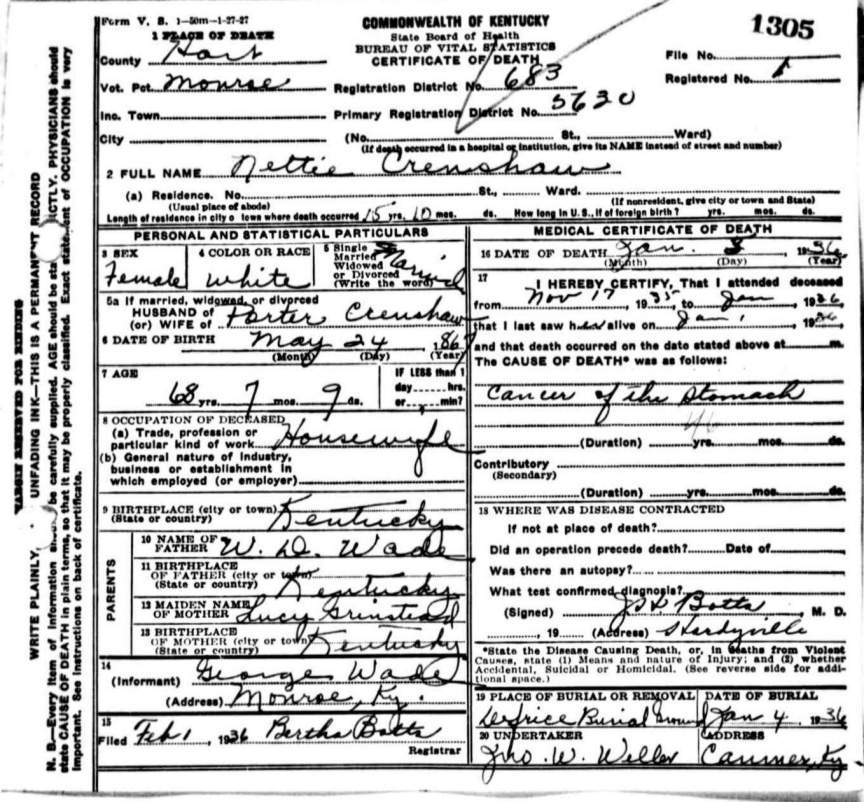 Form V. S. 1-50m-1-27-27
COMMONWEALTH OF KENTUCKY
State Board of Health
BUREAU OF VITAL STATISTICS
CERTIFICATE OF DEATH
1305
1 PLACE OF DEATH
County Hart
Vot. Pct. Monroe
Inc. Town
City
Registration District No. 683
Primary Registration District No. 5620
File No.
Registered No. 1
(No. St., Ward)
(If death occurred in a hospital or institution, give its NAME instead of street and number)
2 FULL NAME Nettie Crenshaw
(a) Residence. No. St., Ward.
(Usual place of abode) (If nonresident, give city or town and State)
Length of residence in city o town where death occurred 15 yrs. 10 mos. ds. How long in U.S., if of foreign birth? yrs. mos. ds.
PERSONAL AND STATISTICAL PARTICULARS
3 SEX Female
4 COLOR OR RACE White
5 Single Married Widowed or Divorced (Write the word) Married
5a If married, widowed, or divorced
HUSBAND of
(or) WIFE of Porter Crenshaw
6 DATE OF BIRTH May 24, 1867
(Month) (Day) (Year)
7 AGE 68 yrs. 7 mos. 9 ds.
IF LESS than 1 day hrs. or min?
8 OCCUPATION OF DECEASED
(a) Trade, profession or
particular kind of work Housewife
(b) General nature of industry,
business or establishment in
which employed (or employer)
9 BIRTHPLACE (city or town)
(State or country) Kentucky
PARENTS
10 NAME OF FATHER W. D. Wade
11 BIRTHPLACE
OF FATHER (city or town)
(State or country) Kentucky
12 MAIDEN NAME
OF MOTHER Lucy Grinstead
13 BIRTHPLACE
OF MOTHER (city or town)
(State or country) Kentucky
14
(Informant) George Wade
(Address) Monroe, Ky.
15
Filed Feb 1, 1936 Bertha Botts
Registrar
MEDICAL CERTIFICATE OF DEATH
16 DATE OF DEATH Jan. 1936
(Month) (Day) (Year)
17 I HEREBY CERTIFY, That I attended deceased
from Nov 17, 1935, to Jan 1936
that I last saw her alive on Jan 1, 1936
and that death occurred on the date stated above at m.
The CAUSE OF DEATH* was as follows:
Cancer of the Stomach
46
(Duration) yrs. mos. ds.
Contributory
(Secondary)
(Duration) yrs. mos. ds.
18 WHERE WAS DISEASE CONTRACTED
If not at place of death?
Did an operation precede death? Date of
Was there an autopsy?
What test confirmed diagnosis?
(Signed) Botts, M. D.
, 19 (Address) Hardyville
*State the Disease Causing Death, or, in deaths from Violent
Causes, state (1) Means and nature of Injury; and (2) whether
Accidental, Suicidal or Homicidal. (See reverse side for addi-
tional space.)
19 PLACE OF BURIAL OR REMOVAL Burial Ground
DATE OF BURIAL Jan 4, 1936
20 UNDERTAKER Jno. W. Weller
ADDRESS Canmer, Ky
MARGIN RESERVED FOR BINDING
WRITE PLAINLY, UNFADING INK—THIS IS A PERMANENT RECORD
N. B.—Every item of information be carefully supplied. AGE should be sta ICTLY. PHYSICIANS should
state CAUSE OF DEATH in plain terms, so that it may be properly classified. Exact statement of OCCUPATION is very
important. See instructions on back of certificate.